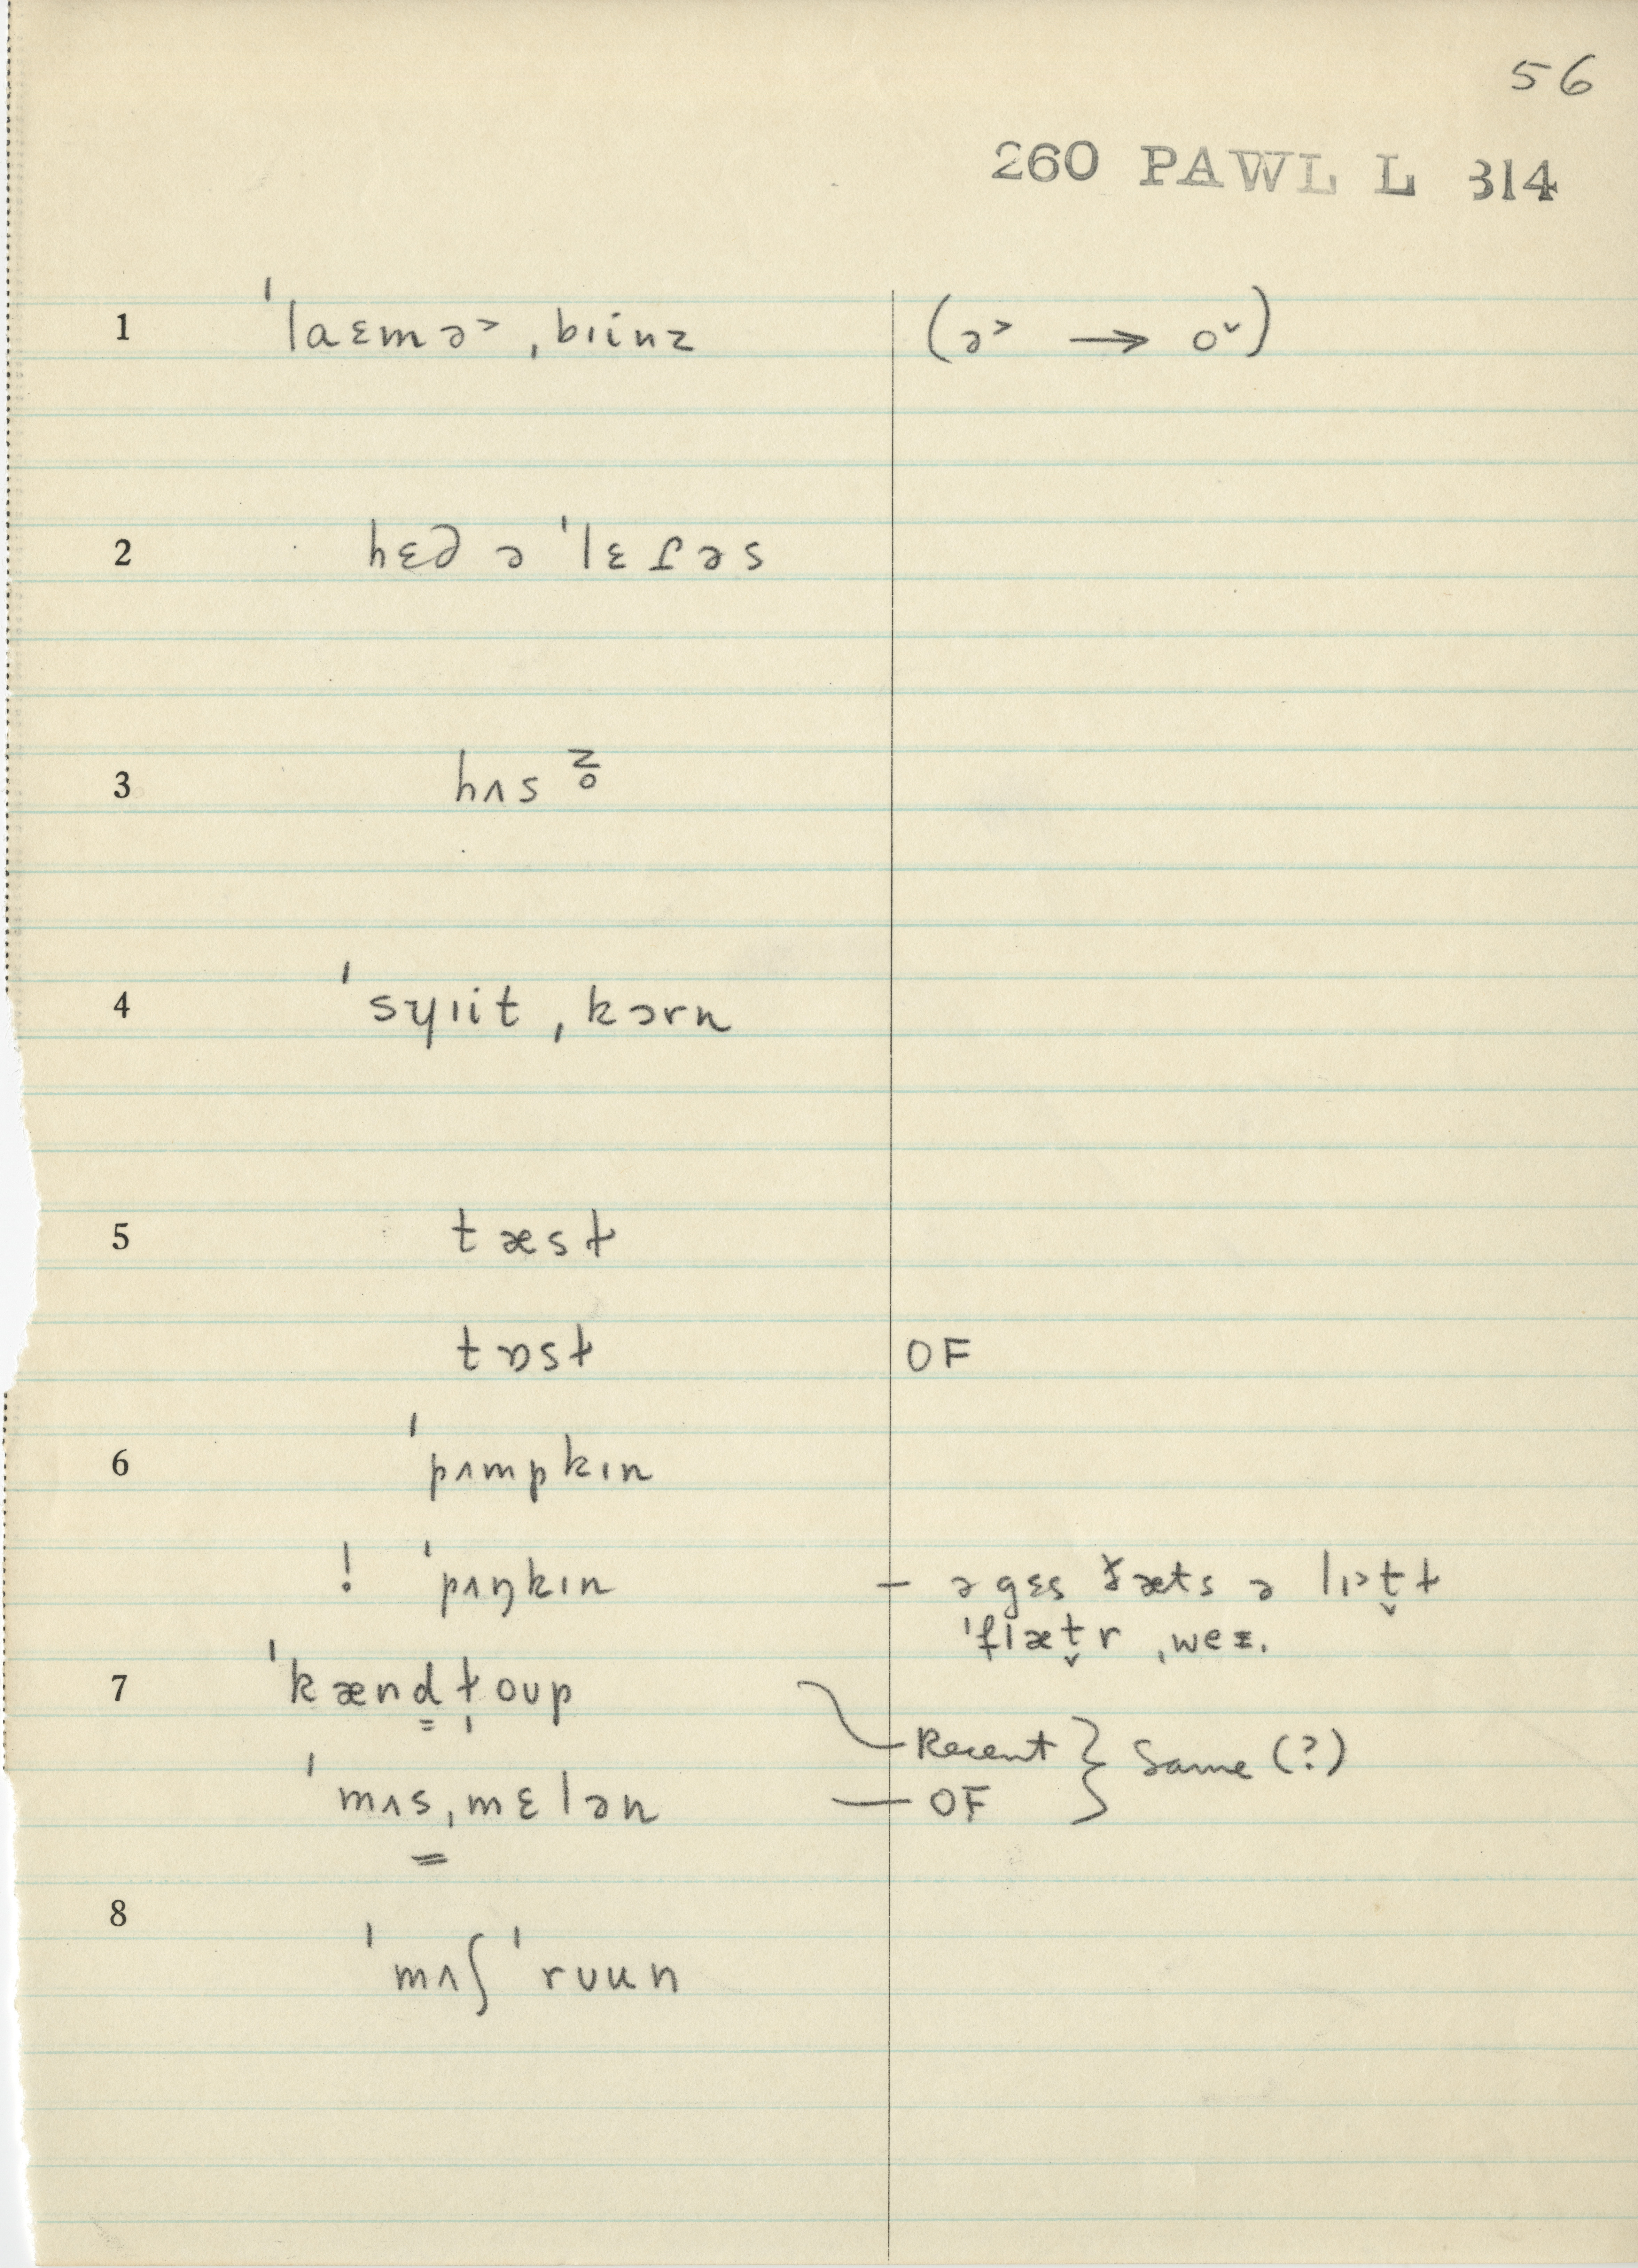 56
260 PAWL L 314
1 ˈlaɛmə˃ ˌbɪinz (ə˃ → o˅)
2 hɛd ə ˈlɛɾəs
3 hʌs
4 ˈsɥɪit ˌkɔrn
5 tæsɫ
tɒsɫ OF
6 ˈpʌmpkɪn
! ˈpʌŋkɪn – ə gɛs ðæts ə lɪ˃t̬ɫ
ˈflæt̬r ˌwe
7 ˈkænd̳ɫ̩oup – Recent } Same (?)
ˈmʌs̳ˌmɛlən – OF
8 ˈmʌʃ ˈrʊun